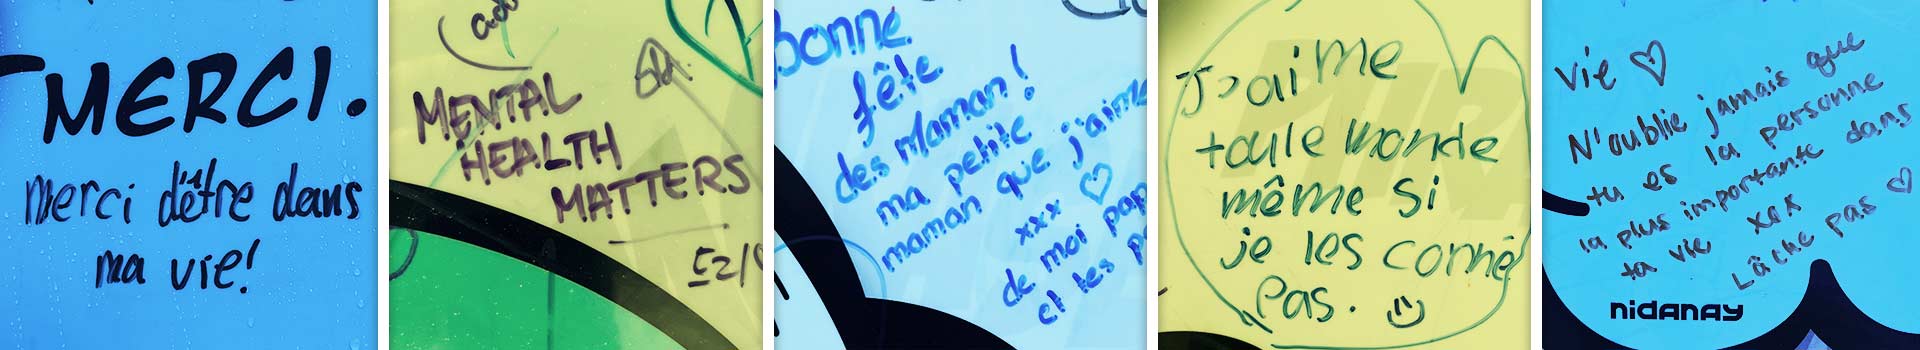 MERCI.
merci d'être dans
ma vie!
MENTAL
HEALTH
MATTERS
bonne
fête
des Maman!
ma petite
maman que j'aime
xxx
de moi pap
et tes p
J'aime
toule monde
même si
je les conné
pas.
Vie
N'oublie jamais que
tu es la personne
la plus importante dans
ta vie xox
Lâche pas
nidanay